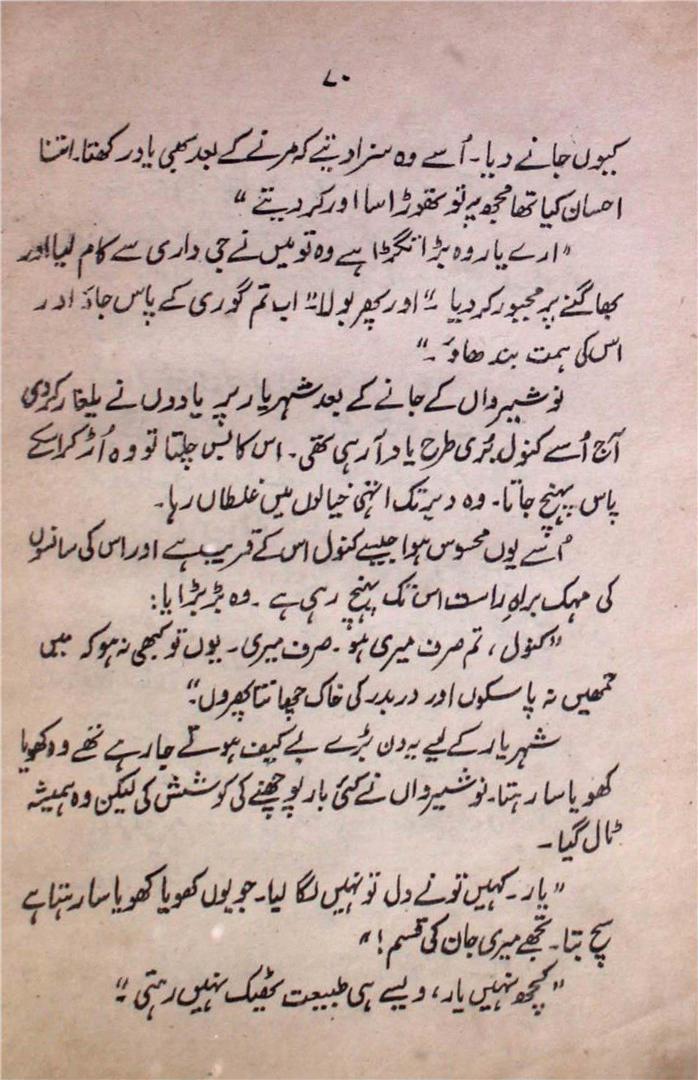 ۷۰
کیوں جانے دیا۔ اُسے وہ سزا دیتے کہ مرنے کے بعد بھی یاد رکھتا۔ اتنا
احسان کیا تھا مجھ پہ تو تھوڑا سا اور کر دیتے "
"ارے یار وہ بڑا تگڑا ہے وہ تو میں نے جی داری سے کام لیا اور
بھاگنے پر مجبور کر دیا ۔" اور پھر بولا۔" اب تم گوری کے پاس جاؤ اور
اس کی ہمت بندھاؤ ۔"
نوشیرواں کے جانے کے بعد شہریار پر یادوں نے یلغار کر دی
آج اُسے کنول بُری طرح یاد آ رہی تھی۔ اس کا بس چلتا تو وہ اُڑ کر اسکے
پاس پہنچ جاتا۔ وہ دیر تک انہی خیالوں میں غلطاں رہا۔
اُسے یوں محسوس ہوا جیسے کنول اس کے قریب ہے اور اس کی سانسوں
کی مہک براہِ راست اس تک پہنچ رہی ہے ۔ وہ بڑبڑایا:
"کنول ، تم صرف میری ہو ۔ صرف میری۔ یوں تو کبھی نہ ہو کہ میں
تمھیں نہ پا سکوں اور در بدر کی خاک چھانتا پھروں۔"
شہریار کے لیے یہ دن بڑے بے کیف ہوتے جا رہے تھے وہ کھویا
کھویا سا رہتا۔ نوشیرواں نے کئی بار پوچھنے کی کوشش کی لیکن وہ ہمیشہ
ٹال گیا ۔
"یار ۔ کہیں تو نے دل تو نہیں لگا لیا۔ جو یوں کھویا کھویا سا رہتا ہے
سچ بتا۔ تجھے میری جان کی قسم ! "
"کچھ نہیں یار ، ویسے ہی طبیعت ٹھیک نہیں رہتی ۔"